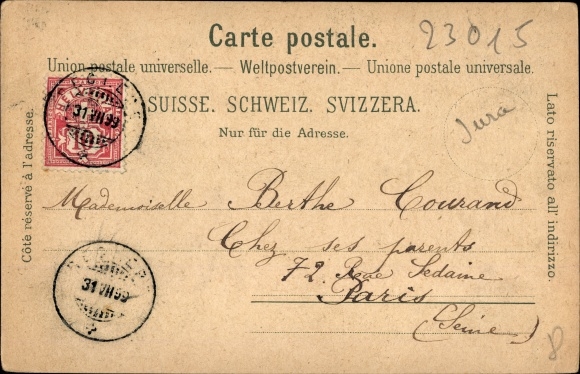 Carte postale.
23015
Union postale universelle. — Weltpostverein. — Unione postale universale.
SUISSE. SCHWEIZ. SVIZZERA.
Nur für die Adresse.
Côté réservé à l'adresse.
Lato riservato all' indirizzo.
Jura
31 VII 99
Mademoiselle Berthe Courand
Chez ses parents
72. Rue Sedaine
Paris
(Seine)
31 VII 99